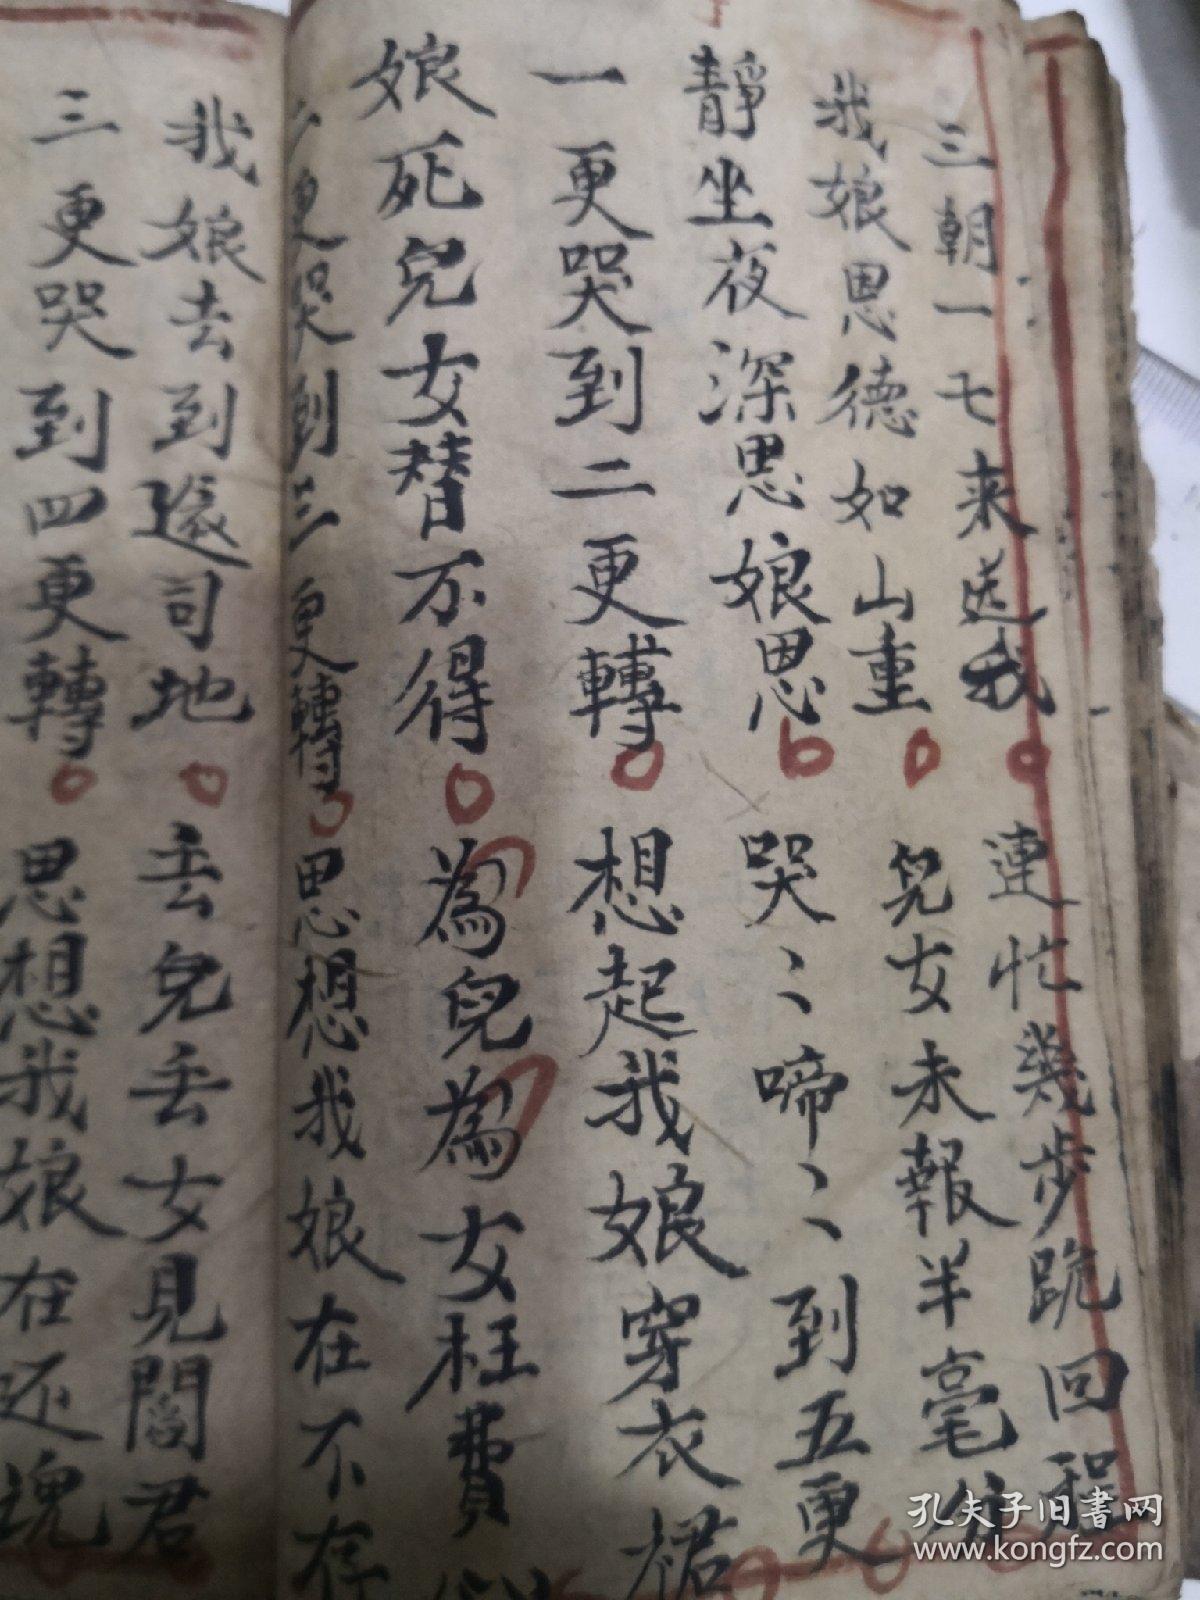 三朝一七来送我 連忙幾步跪回程
我娘恩德如山重 兒女未報半毫分
靜坐夜深思娘恩 哭〻啼〻到五更
一更哭到二更轉 想起我娘穿衣裙
娘死兒女替不得 為兒為女枉費
二更哭到三更轉 思想我娘在不存
我娘去到陰司地 丢兒丢女見閻君
三更哭到四更轉 思想我娘在还魂
孔夫子旧书网
www.kongfz.com